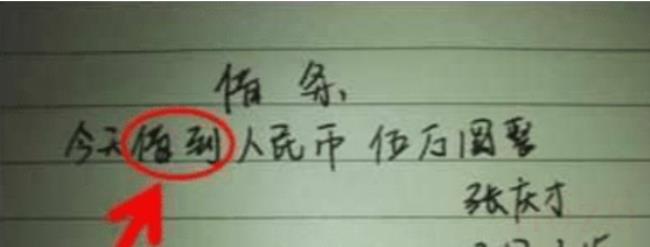 借条
今天借到人民币伍万圆整
张庆才